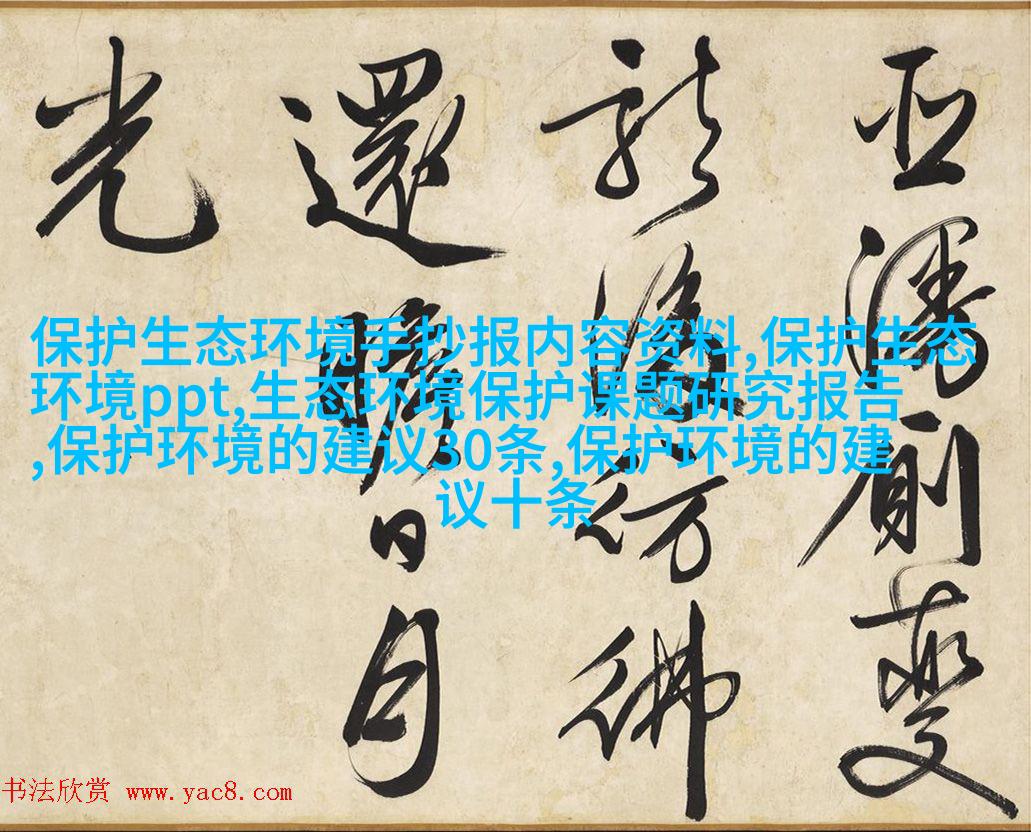 變
彷彿
還瞻日月
光
保护生态环境手抄报内容资料,保护生态
环境ppt,生态环境保护课题研究报告
,保护环境的建议30条,保护环境的建
议十条
书法欣赏 www.yac8.com